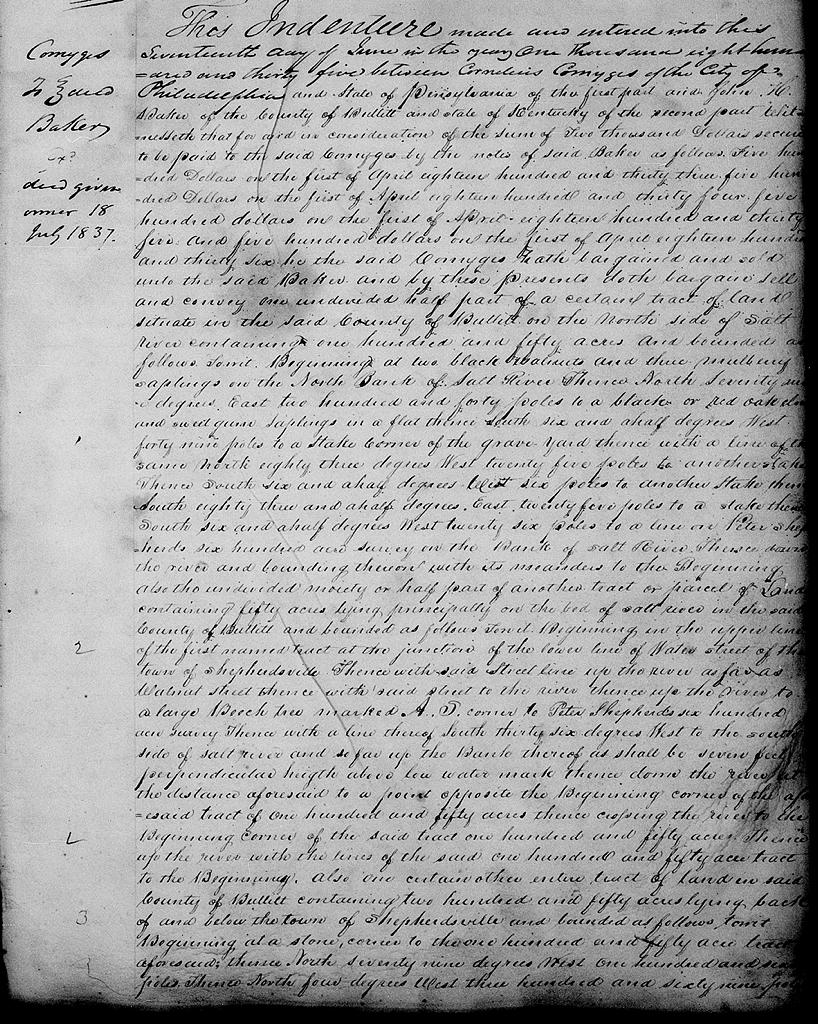 This Indenture made and entered into this
Seventeenth day of June in the year One thousand eight hun
=dred and thirty five between Cornelius Comyges of the City of
Philadelphia and State of Pensylvania of the first part and John H.
Baker of the County of Bullitt and state of Kentucky of the second part Wit
nesseth that for and in consideration of the sum of Two thousand Dollars secure
to be paid to the said Comyges by the notes of said Baker as follows. Five hun
=dred Dollars on the first of April eighteen hundred and thirty three five hun
=dred Dollars on the first of April eighteen hundred and thirty four five
hundred dollars on the first of April eighteen hundred and thirty
five and five hundred dollars on the first of April eighteen hundred
and thirty six he the said Comyges hath bargained and sold
unto the said Baker and by these presents doth bargain sell
and convey one undivided half part of a certain tract of land
situate in the said County of Bullitt on the North side of Salt
river containing one hundred and fifty acres and bounded as
follows Towit. Beginning at two black walnuts and three mulberry
saplings on the North Bank of Salt River Thence North Seventy
degrees East two hundred and forty poles to a black or red oak elm
and sweed gum saplings in a flat thence south six and ahalf degrees West
forty nine poles to a Stake Corner of the grave yard thence with a line of the
same North eighty three degrees West twenty five poles to another stake
Thence South six and ahalf degrees West six poles to another Stake thence
South eighty three and ahalf degrees East twenty five poles to a stake thence
South six and ahalf degrees West twenty six poles to a line on Peter Shep
herds six hundred acre survey on the Bank of Salt River Thence down
the river and bounding thereon with its meanders to the Beginning
also the undivided moiety or half part of another tract or parcel of Land
containing fifty acres lying principally on the bed of salt river in the said
County of Bullitt and bounded as follows Towit Beginning in the upper line
of the first named tract at the junction of the lower line of Water Street of the
town of Shepherdsville Thence with said Street line up the river as far as
Walnut Street thence with said street to the river thence up the river to
a large Beech tree marked A. S. corner to Peter Shepherds six hundred
acre survey Thence with a line thereof South thirty six degrees West to the south
side of salt river and so far up the Bank thereof as shall be seven feet
perpendicular heigth above low water mark thence down the river at
the distance aforesaid to a point opposite the Beginning corner of the afor
=esaid tract of one hundred and fifty acres thence crossing the river to the
Beginning corner of the said tract one hundred and fifty acres Thence
up the river with the lines of the said one hundred and fifty acre tract
to the Beginning. Also one certain other entire tract of land in said
County of Bullitt containing two hundred and fifty acres lying back
of and below the town of Shepherdsville and bounded as follows towit
Beginning at a stone, corner to the one hundred and fifty acre tract
aforesaid; thence North seventy nine degrees West one hundred and
poles Thence North four degrees West three hundred and sixty nine poles
Comyges
To deed
Baker
Exd
deed given
owner 18
July 1837.
2
3